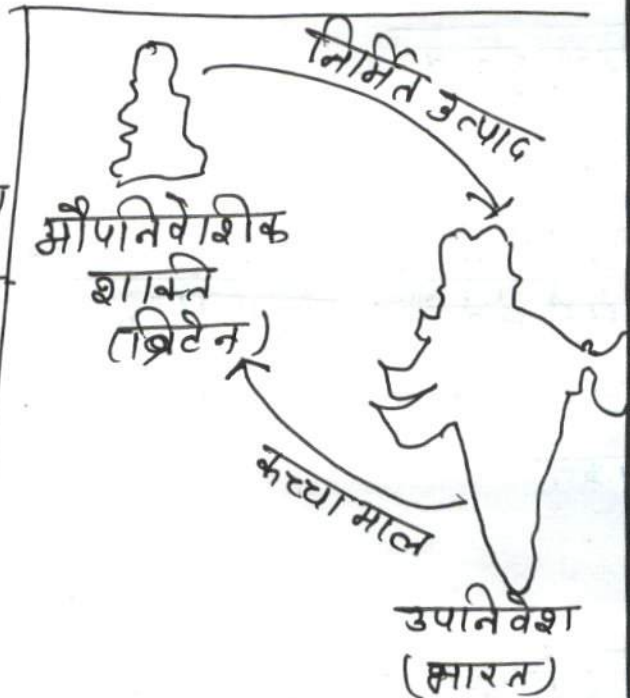 निर्मित उत्पाद
औपनिवेशिक
शक्ति
(ब्रिटेन)
कच्चा माल
उपनिवेश
(भारत)